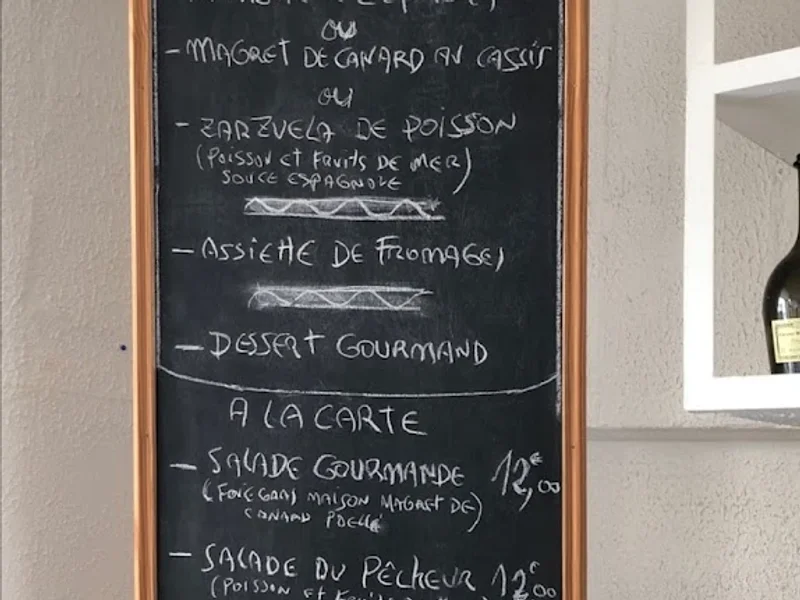 OU
- MAGRET DE CANARD AU CASSIS
OU
- ZARZUELA DE POISSON
(POISSON ET FRUITS DE MER)
SOUCE ESPAGNOLE
- ASSIETTE DE FROMAGES
- DESSERT GOURMAND
A LA CARTE
- SALADE GOURMANDE 12,€00
(FOIE GRAS MAISON MAGRET DE)
CANARD POELÉ
- SALADE DU PÊCHEUR 12€00
(POISSON ET FRUITS DE